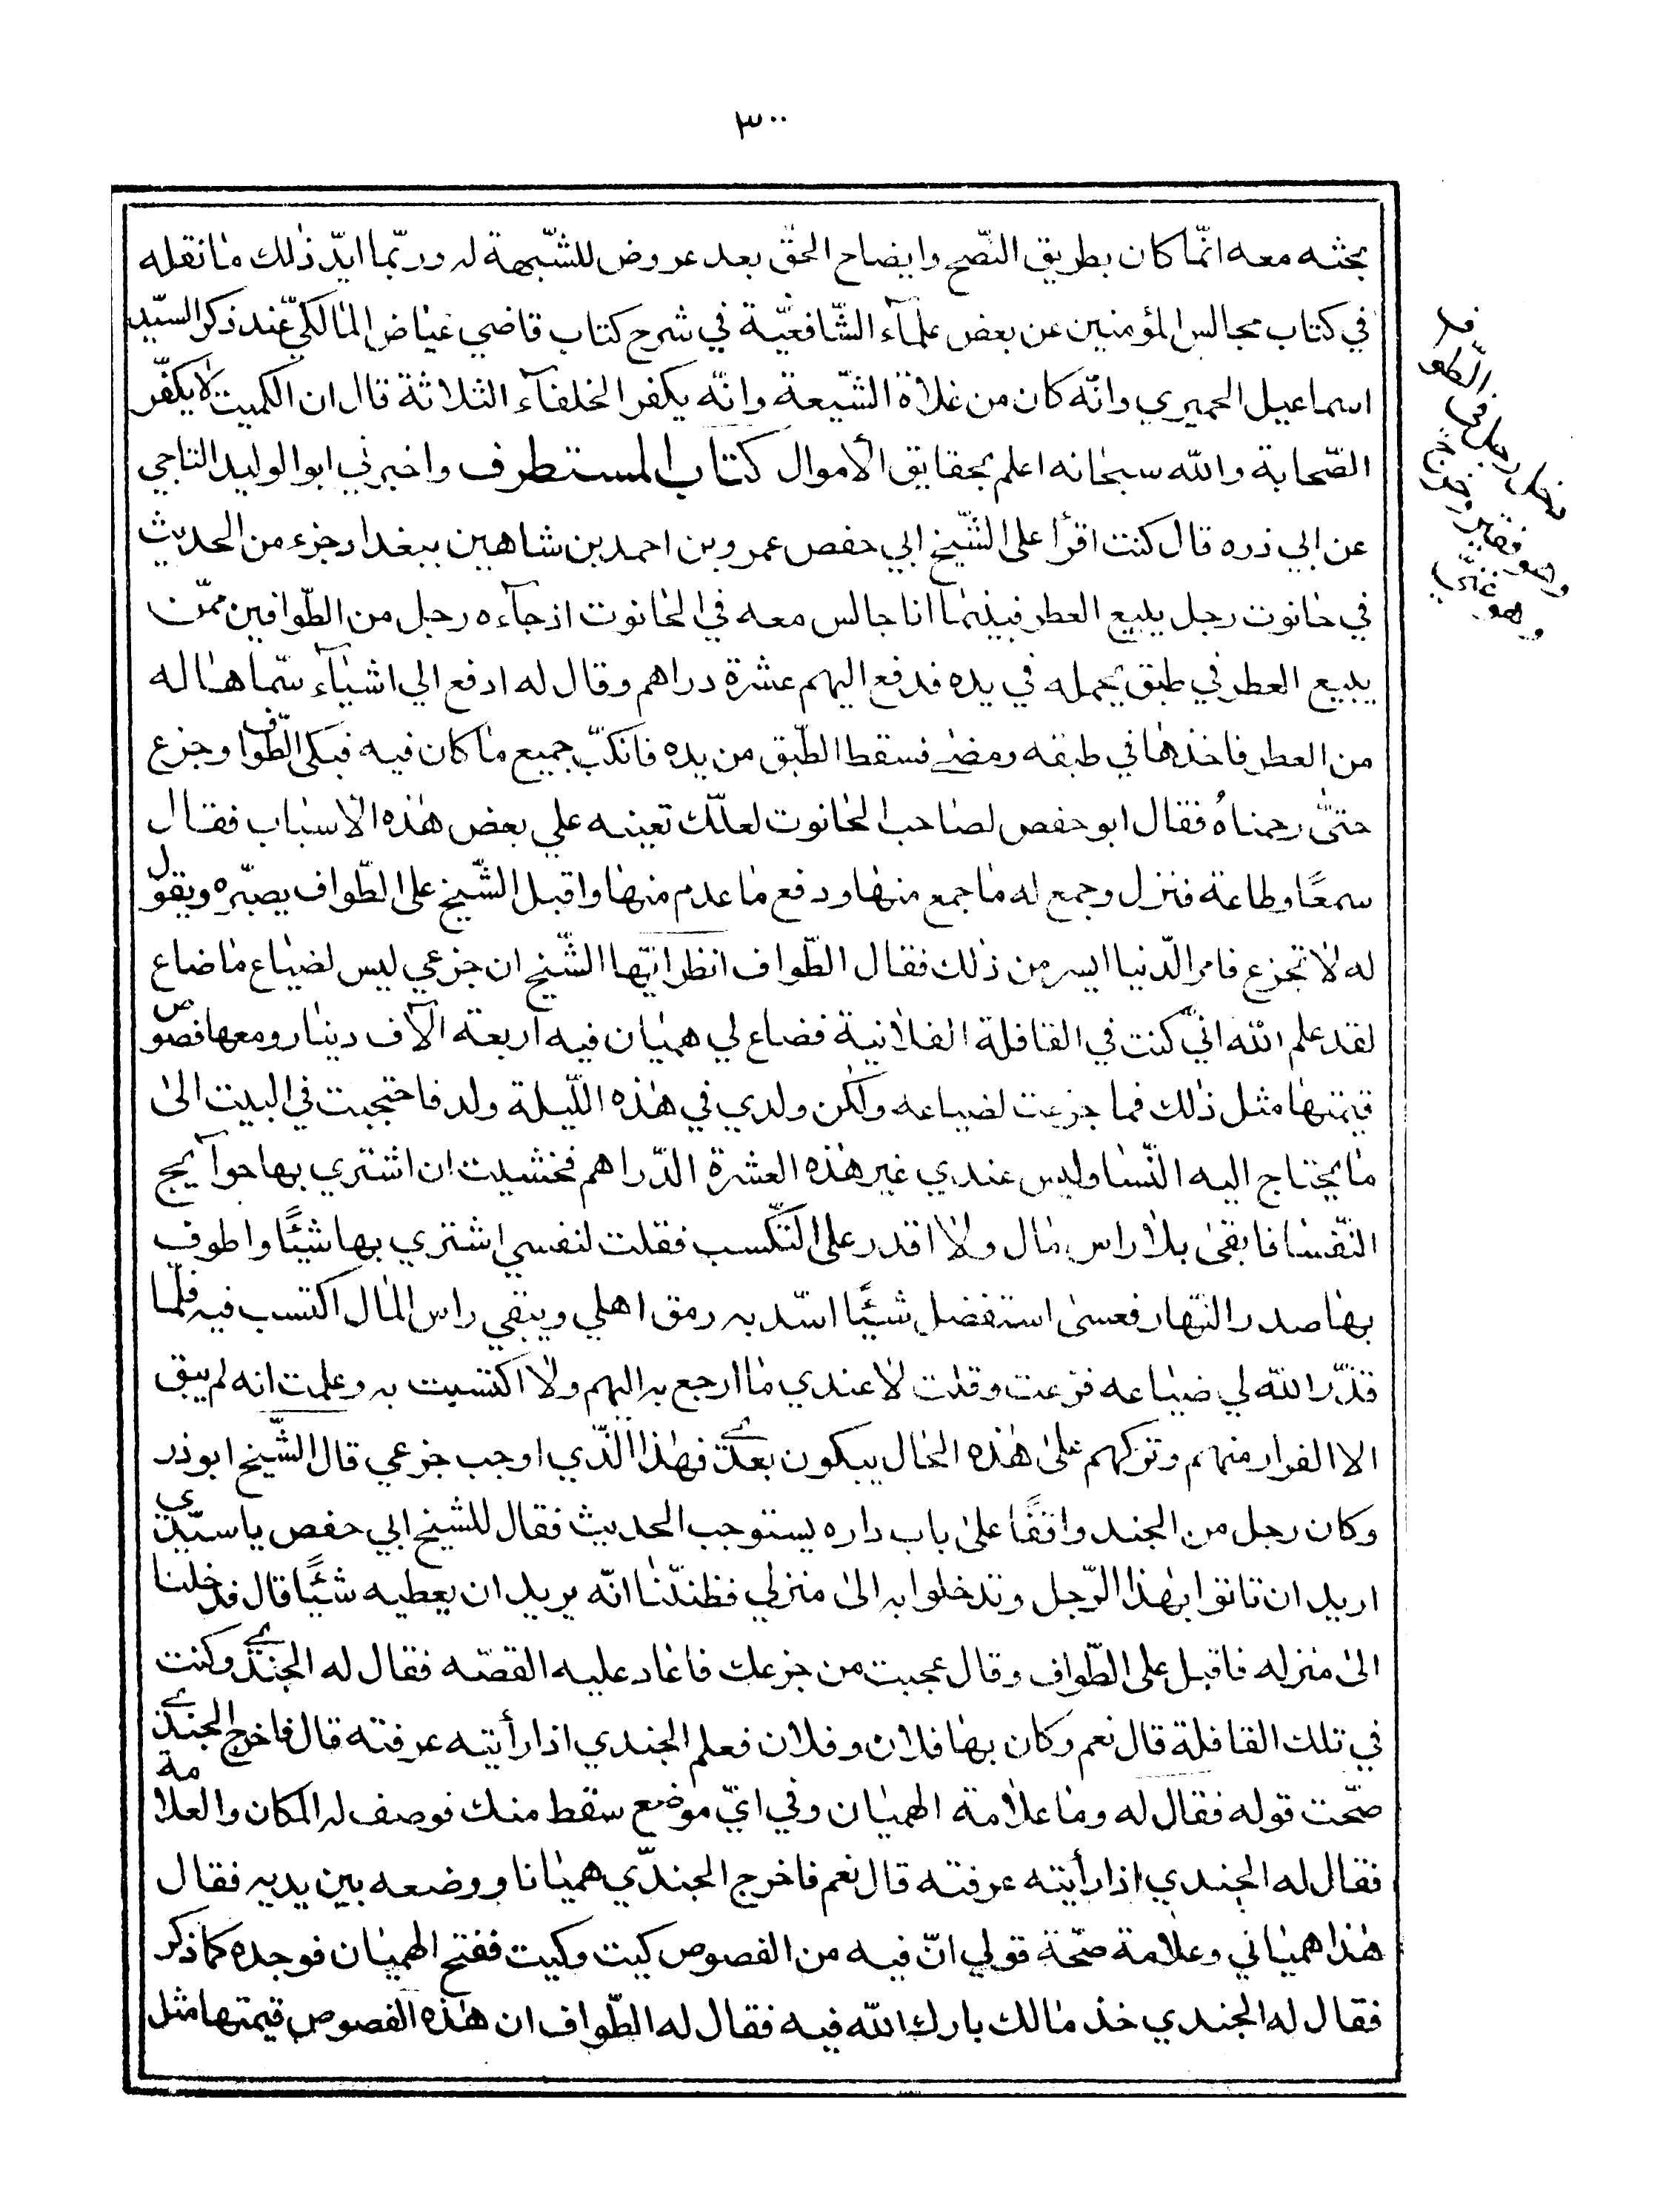 ٣٠٠
بحثه معه انّما كان بطريق النّصح وايضاح الحقّ بعد عروض للشّبهة له وربّما ايّد ذلك ما نقله
في كتاب مجالس المؤمنين عن بعض علمآء الشّافعيّة في شرح كتاب قاضي عياض المالكيّ عند ذكر السيّد
اسماعيل الحميري وانّه كان من غلاة الشّيعة وانّه يكفر الخلفآء الثلاثة قال ان الكميت لا يكفّر
الصّحابة والله سبحانه اعلم بحقايق الاموال كتاب المستطرف واخبرني ابو الوليد التاجي
عن ابي ذره قال كنت اقرأ على الشّيخ ابي حفص عمرو بن احمد بن شاهين ببغداد جزء من الحديث
في حانوت رجل يبيع العطر فبينما انا جالس معه في الحانوت اذ جآءه رجل من الطّوافين ممّن
يبيع العطر في طبق يحمله في يده فدفع اليهم عشرة دراهم وقال له ادفع الي اشيآء سمّاها له
من العطر فاخذها في طبقه ومضى فسقط الطّبق من يده فانكبّ جميع ما كان فيه فبكى الطّواف وجزع
حتّى رحمناهُ فقال ابو حفص لصاحب الحانوت لعلّك تعينه علي بعض هذه الاسباب فقال
سمعًا وطاعة فنزل وجمع له ما جمع منها ودفع ما عدم منها واقبل الشّيخ على الطّواف يصبّره ويقول
له لا تجزع فامر الدّنيا ايسر من ذلك فقال الطّواف انظر ايّها الشّيخ ان جزعي ليس لضياع ما ضاع
لقد علم الله انّي كنت في القافلة الفلانية فضاع لي هميان فيه اربعة الآف دينار ومعها فصوص
قيمتها مثل ذلك فما جزعت لضياعه ولكن ولدي في هذه اللّيلة ولد فاحتجبت في البيت الى
ما يحتاج اليه النّسا وليس عندي غير هذه العشرة الدّراهم فخشيت ان اشتري بها حوآيج
النّفسا فابقى بلا راس مال ولا اقدر على التّكسب فقلت لنفسي اشتري بها شيئًا واطوف
بها صدر النّهار فعسى استفضل شيئًا اسّد به رمق اهلي ويبقي راس المال اكتسب فيه فلمّا
قدّر الله لي ضياعه فزعت وقلت لا عندي ما ارجع به اليهم ولا اكتسيت به وعلمت انه لم يبق
الا الفرار منهم وتركهم على هذه الحال يبكون بعدي فهذا الّذي اوجب جزعي قال الشّيخ ابو ذر
وكان رجل من الجند واقفًا على باب داره يستوجب الحديث فقال للشيخ ابي حفص يا سيّدي
اريد ان تاتوا بهذا الرّجل وتدخلوا به الى منزلي فظننّا انّه يريد ان يعطيه شيئًا قال فدخلنا
الى منزله فاقبل على الطّواف وقال عجبت من جزعك فاعاد عليه القصّه فقال له الجندي وكنت
في تلك القافلة قال نعم وكان بها فلان وفلان فعلم الجندي اذا رأيته عرفته قال فاخرج الجندي
صحّت قوله فقال له وما علامة الهميان وفي ايّ موضع سقط منك فوصف له المكان والعلامة
فقال له الجندي اذا رأيته عرفته قال نعم فاخرج الجندّي هميانا ووضعه بين يديه فقال
هذا همياني وعلامة صحّة قولي انّ فيه من الفصوص كيت وكيت ففتح الهميان فوجده كما ذكر
فقال له الجندي خذ مالك بارك الله فيه فقال له الطّواف ان هذه الفصوص قيمتها مثل
دخل رجل في الطّواف
وهو فقير وخرج
وهو غنيّ